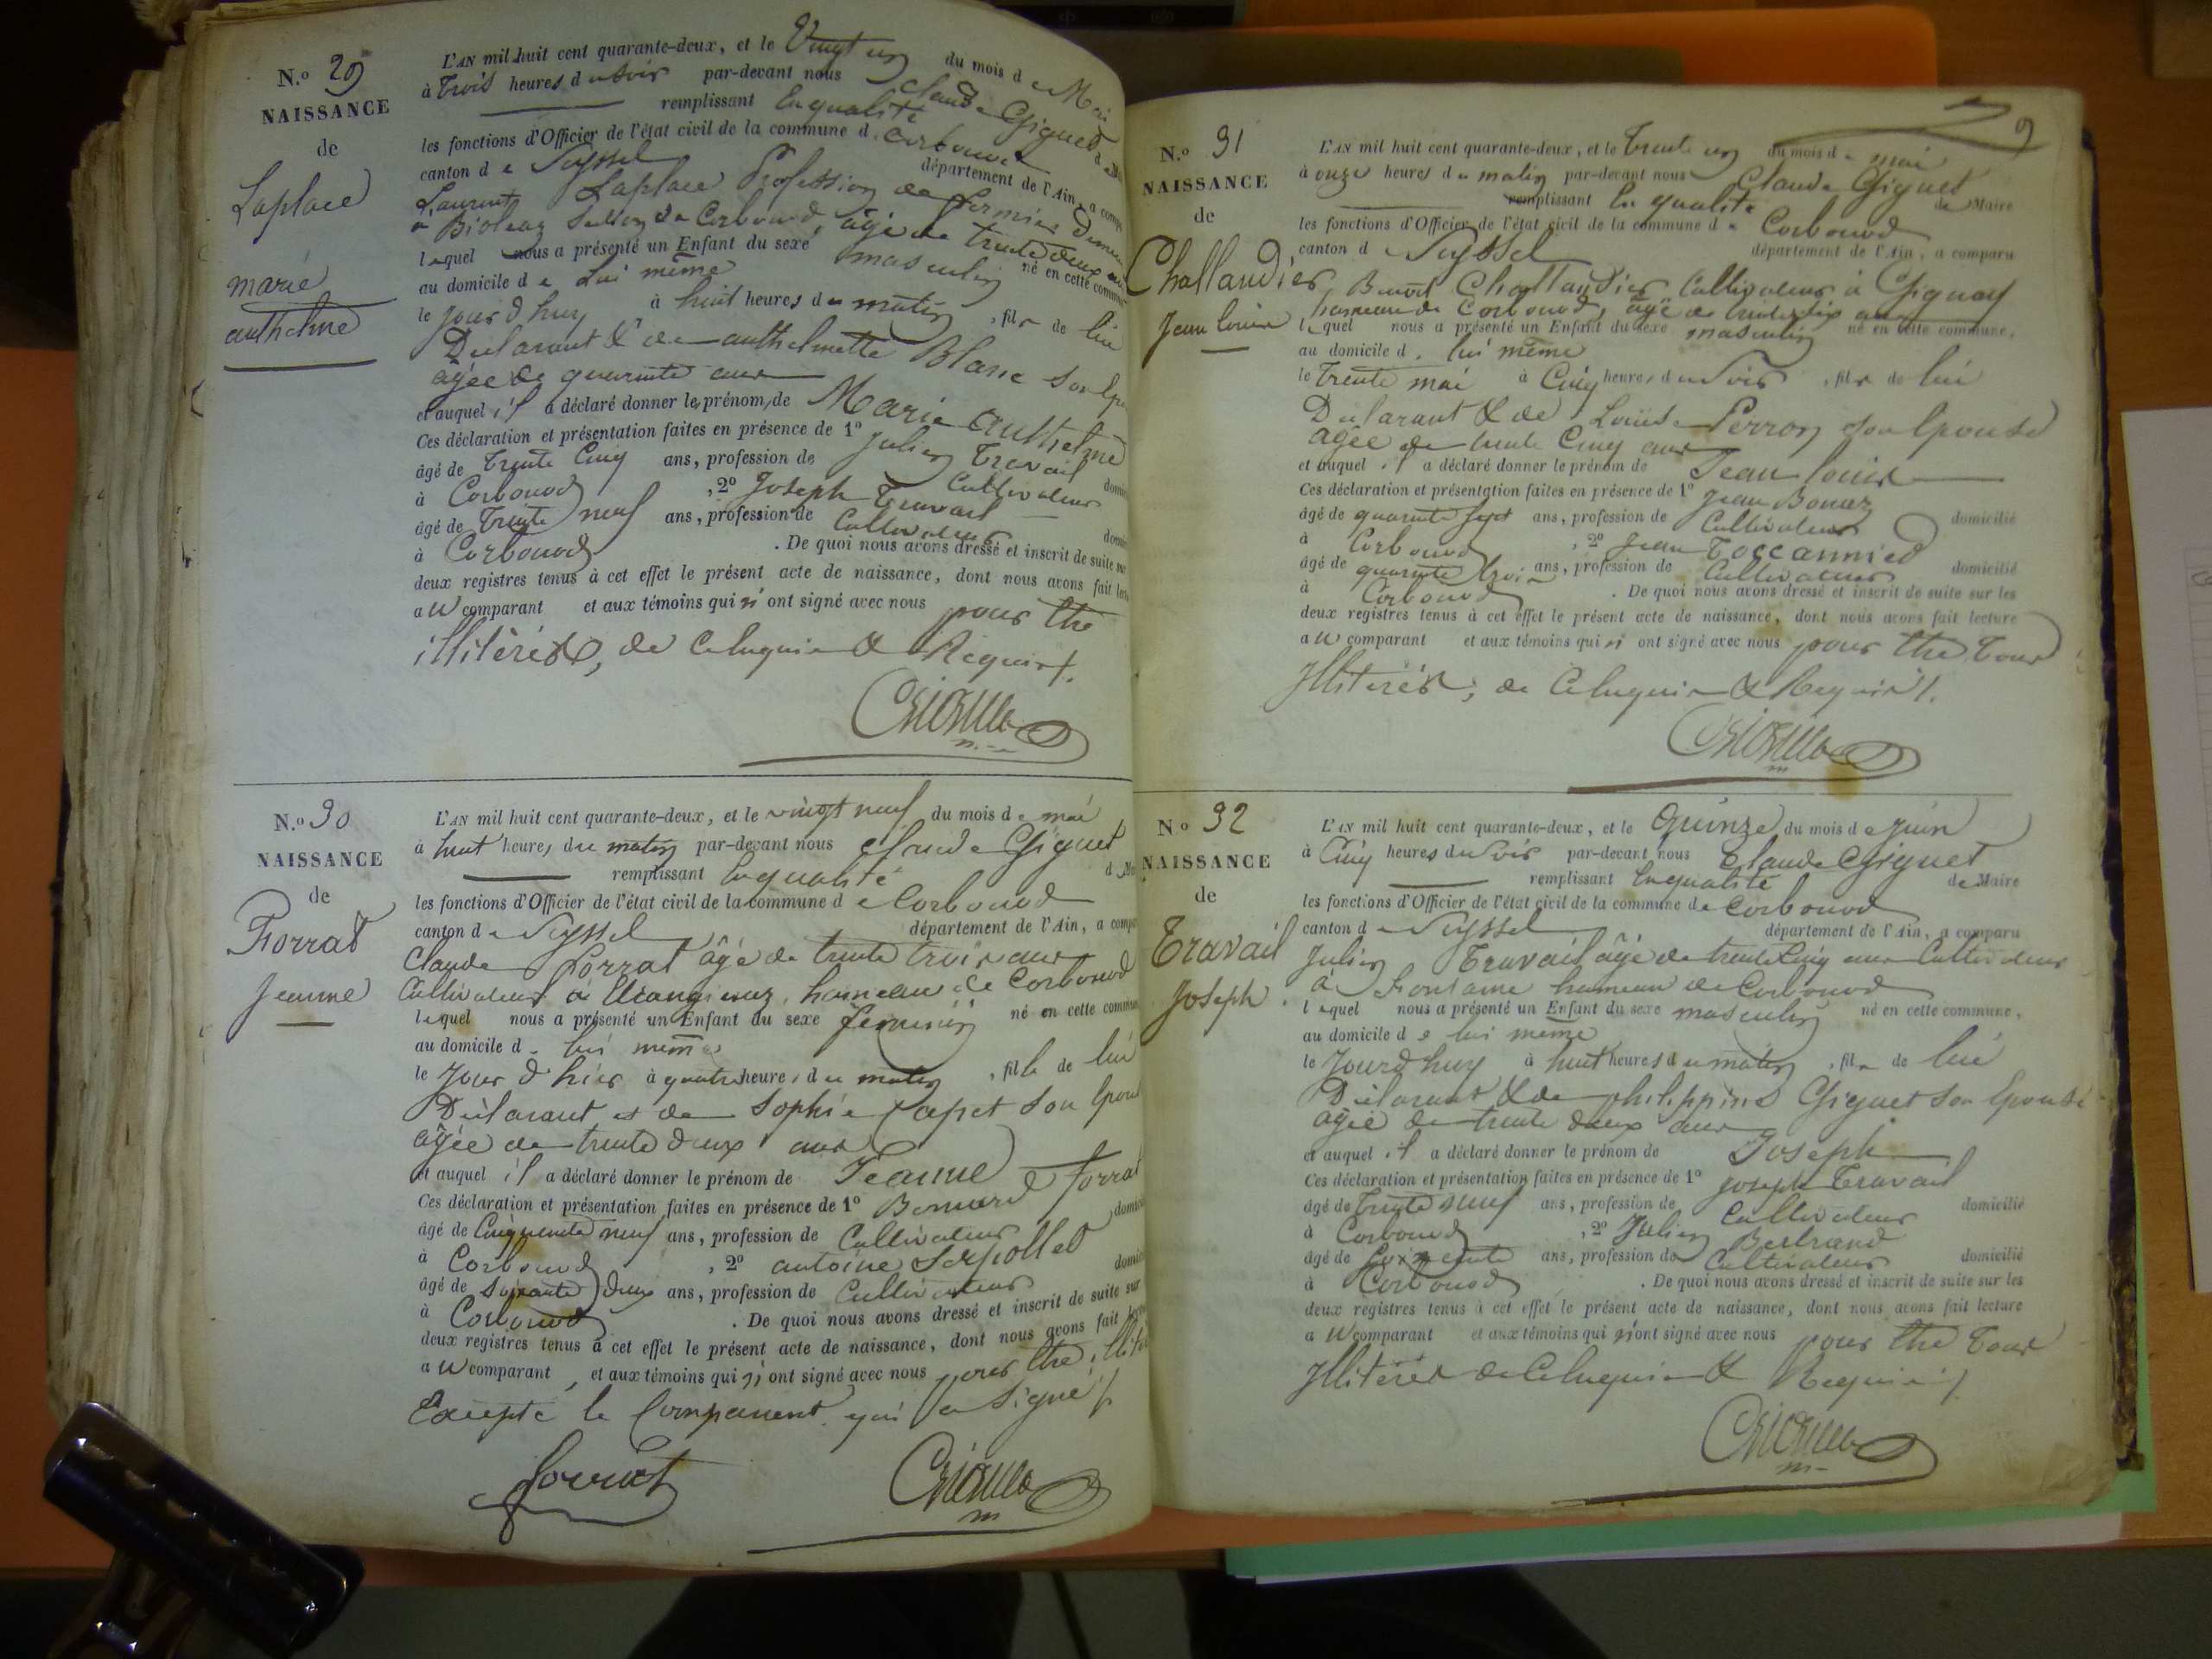 N.o 29
NAISSANCE
de
Laplace
marie
anthelme
L'AN mil huit cent quarante-deux, et le Vingt un du mois de Mai
à Trois heures du soir par-devant nous Claude Giguet
remplissant En qualité de
les fonctions d'Officier de l'état civil de la commune d Corbonod
canton de Seyssel département de l'Ain, a comparu
Laurent Laplace Profession de fermier
à Bioleaz de Corbonod, âgé de trente deux ans
lequel nous a présenté un Enfant du sexe masculin né en cette commune
au domicile de Lui même
le jourd'huy à huit heures du matin, fils de lui
Déclarant & de anthelmette Blanc son
agée de quarante ans
et auquel il a déclaré donner les prénoms de Marie Anthelme
Ces déclaration et présentation faites en présence de 1º Julien Travail
âgé de Trente Cinq ans, profession de Cultivateur
à Corbonod, 2º Joseph Travail
âgé de Trente neuf ans, profession de Cultivateur
à Corbonod. De quoi nous avons dressé et inscrit de suite sur
deux registres tenus à cet effet le présent acte de naissance, dont nous avons fait
au comparant et aux témoins qui n'ont signé avec nous pour être
illitérés, de ce Enquis & Requis.
N.o 30
NAISSANCE
de
Forrat
Jeanne
L'AN mil huit cent quarante-deux, et le vingt neuf du mois de mai
à huit heures du matin par-devant nous Claude Giguet
remplissant En qualité
les fonctions d'Officier de l'état civil de la commune de Corbonod
canton de Seyssel département de l'Ain, a
Claude Forrat âgé de trente trois ans
Cultivateur à hameau de Corbonod
lequel nous a présenté un Enfant du sexe feminin né en cette
au domicile de lui même
le jour d'hier à quatre heures du matin, fille de lui
Déclarant et de Sophie son
agée de trente deux ans
et auquel il a déclaré donner le prénom de Jeanne
Ces déclaration et présentation faites en présence de 1º Bernard Forrat
âgé de Cinquante neuf ans, profession de Cultivateur
à Corbonod, 2º antoine Serpollet
âgé de Soixante deux ans, profession de Cultivateur
à Corbonod. De quoi nous avons dressé et inscrit de suite sur
deux registres tenus à cet effet le présent acte de naissance, dont nous avons fait
au comparant, et aux témoins qui n'ont signé avec nous pour être
Excepté le Comparant qui a signé
Forrat
N.o 31
NAISSANCE
de
Challandier
Jean louis
L'AN mil huit cent quarante-deux, et le Trente un du mois de mai
à onze heures du matin par-devant nous Claude Giguet
remplissant En qualité de Maire
les fonctions d'Officier de l'état civil de la commune de Corbonod
canton de Seyssel département de l'Ain, a comparu
Benoit Challandier Cultivateur à Gignay
hameau de Corbonod, âgé de trente six ans
lequel nous a présenté un Enfant du sexe masculin né en cette commune,
au domicile de lui même
le Trente mai à Cinq heures du Soir, fils de lui
Déclarant & de Louise Perron son Epouse
agée de trente Cinq ans
et auquel il a déclaré donner le prénom de Jean louis
Ces déclaration et présentation faites en présence de 1º Jean Bonaz
âgé de quarante sept ans, profession de Cultivateur domicilié
à Corbonod, 2º Jean Toccannied
âgé de quarante trois ans, profession de Cultivateur domicilié
à Corbonod. De quoi nous avons dressé et inscrit de suite sur les
deux registres tenus à cet effet le présent acte de naissance, dont nous avons fait lecture
au comparant et aux témoins qui n'ont signé avec nous pour être Tous
Illiterés, de ce Enquis & Requis.
N.o 32
NAISSANCE
de
Travail
Joseph
L'AN mil huit cent quarante-deux, et le Quinze du mois de Juin
à Cinq heures du Soir par-devant nous Claude Giguet
remplissant En qualité de Maire
les fonctions d'Officier de l'état civil de la commune de Corbonod
canton de Seyssel département de l'Ain, a comparu
Julien Travail âgé de trente Cinq ans Cultivateur
à Fontaine hameau de Corbonod
lequel nous a présenté un Enfant du sexe masculin né en cette commune,
au domicile de lui même
le Jourd'huy à huit heures du matin, fils de lui
Déclarant & de philippine Giguet son Epouse
agée de trente deux ans
et auquel il a déclaré donner le prénom de Joseph
Ces déclaration et présentation faites en présence de 1º Joseph Travail
âgé de Trente neuf ans, profession de Cultivateur domicilié
à Corbonod, 2º Julien Bertrand
âgé de Soixante ans, profession de Cultivateur domicilié
à Corbonod. De quoi nous avons dressé et inscrit de suite sur les
deux registres tenus à cet effet le présent acte de naissance, dont nous avons fait lecture
au comparant et aux témoins qui n'ont signé avec nous pour être Tous
Illiterés de ce Enquis & Requis